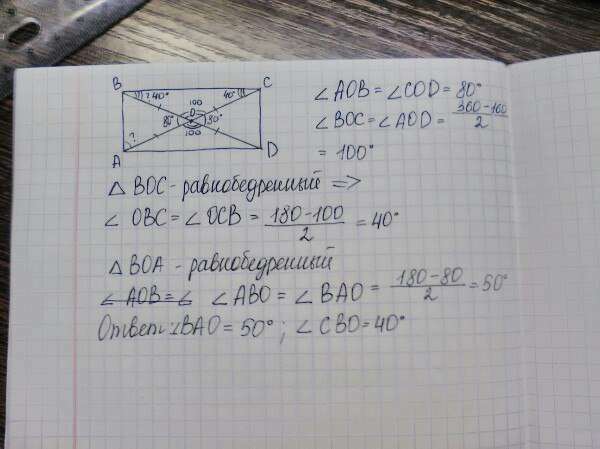 B ? 40° 40° C
100
80° O 80°
100
?
A D
∠AOB = ∠COD = 80°
∠BOC = ∠AOD = (360-160)/2
= 100°
△ BOC - равнобедренный =>
∠ OBC = ∠OCB = (180-100)/2 = 40°
△ BOA - равнобедренный
∠ AOB = ∠ ∠ABO = ∠BAO = (180-80)/2 = 50°
Ответ: ∠BAO = 50° ; ∠CBO = 40°